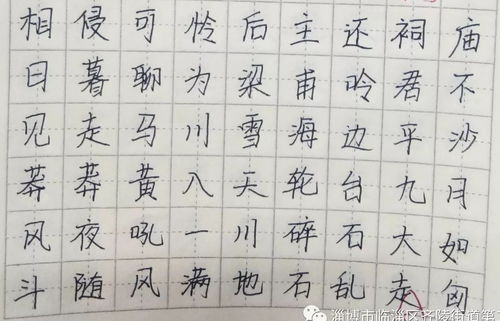 相侵可怜后主还祠庙
日暮聊为梁甫吟君不
见走马川雪海边平沙
莽莽黄入天轮台九月
风夜吼一川碎石大如
斗随风满地石乱走匈
淄博市临淄区齐陵街道笔